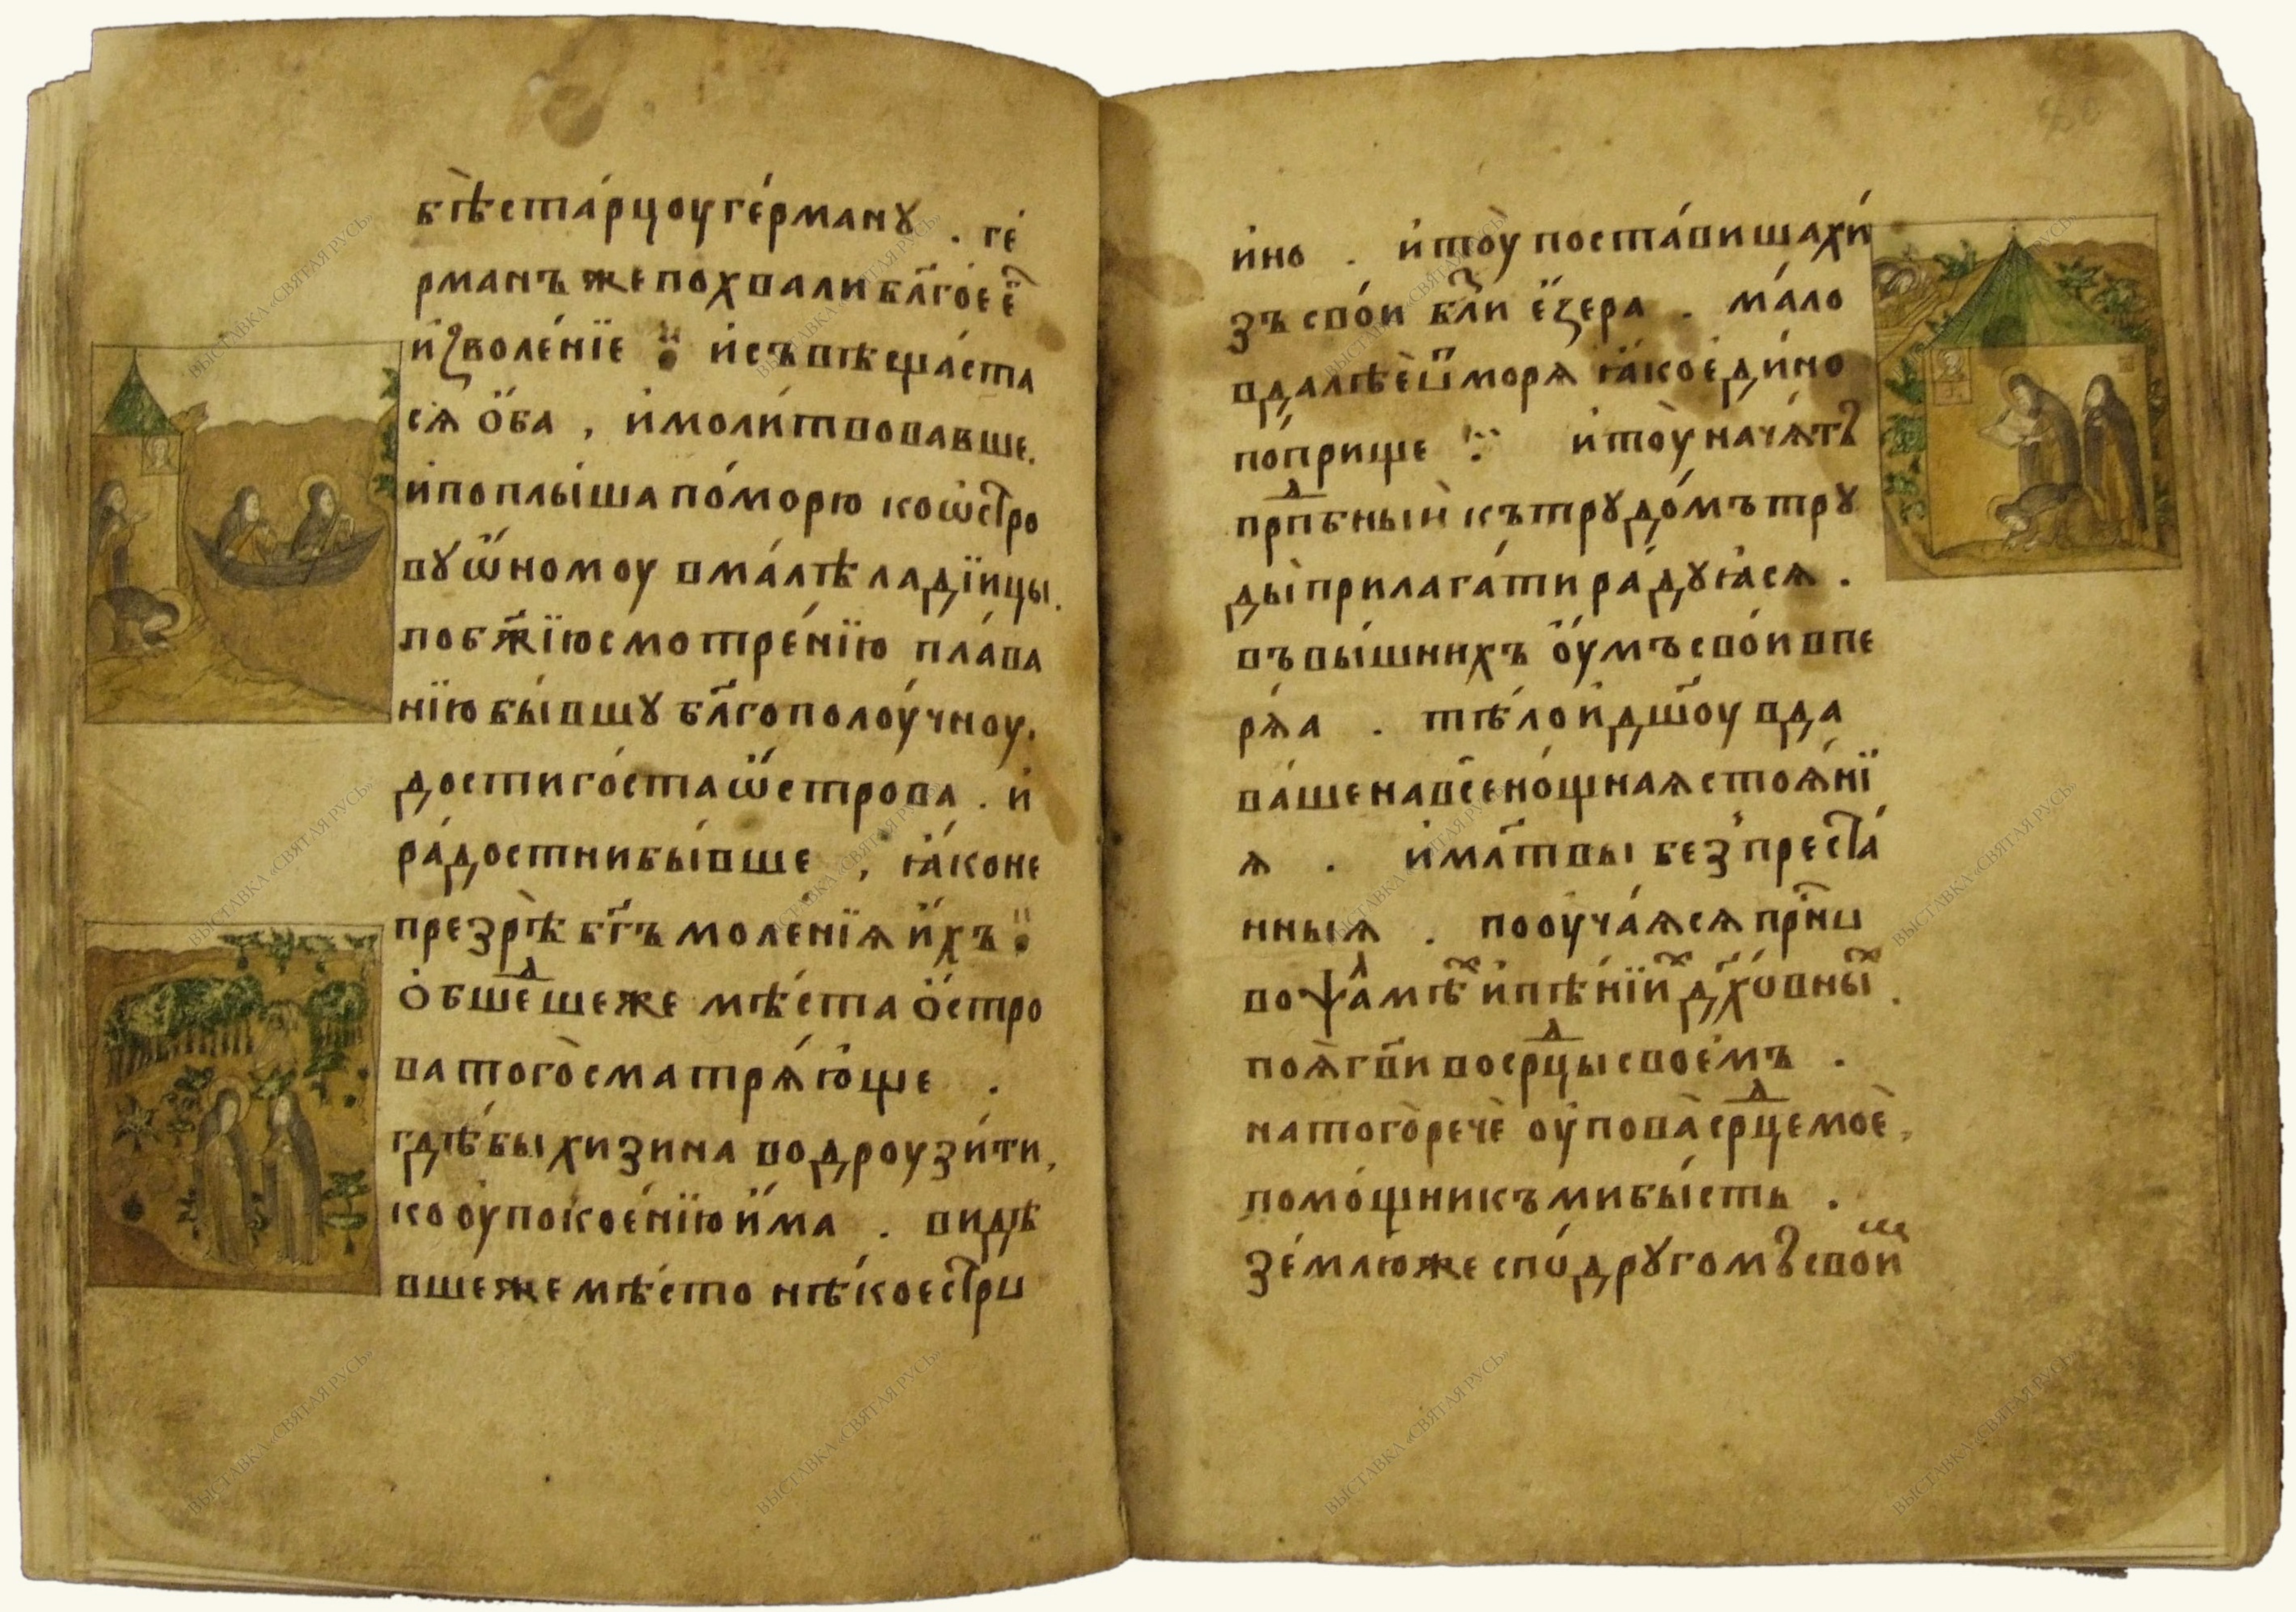 бѣ ста́рцоу ге́рману . ге́
рманъ же похвали бл҃го́е е҆
и҆зволе́нїе и҆ съвѣща́ста
ся о҆ба , и҆ моли́твовавше .
и҆ поплы́ша по́морю ко ѡ҆стро
ву ѡ҆номоу в ма́лѣ ладїицы .
по бж҃їю смотре́нїю пла́ва
нїю бы́вшу бл҃гополоу́чноу .
достиго́ста ѡ҆строва . и҆
ра́достни бы́вше , ꙗ҆́ко не
презрѣ̀ бг҃ъ моле́нїя и҆́хъ
О҆бшеⷣше же мѣ́ста о҆́стро
ва того̀ сматря́ю҆ще .
гдѣ́бы хи́зина водроузи́ти ,
ко оу҆покое́нїю и҆́ма . видѣ
вше же мѣ́сто нѣ́кое стро
и҆но . и҆ тоу̀ поста́виша хи́
зъ сво́и блиⷥ е҆́зера . ма́ло
вдалѣ́е ѿ моря ꙗ҆́ко е҆ди́но
по́прище и҆ тоу̀ нача́тъ
прпⷣбныи къ трудо́мъ тру
ды̀ прилага́ти ра́дуꙗ҆ся .
въ вы́шнихъ оу҆́мъ сво́и впе
ря́а . тѣ́ло и҆ дш҃оу вда
ва́ше на все́но́щная стоя́нї
я . и҆ мл҃твы безпреста́
нныя . пооуча́яся при́сно
во ѱаⷧмѣⷯ и҆ пѣ́нїиⷯ дх҃о́вныⷯ .
поя̀ гв҃и во срⷣцы свое́мъ .
на того̀ речѐ оу҆пова̀ срⷣце моѐ ,
помо́щникъ ми бы́сть .
зе́млю же спо́другомъ свои́мъ
ВЫСТАВКА «СВЯТАЯ РУСЬ»